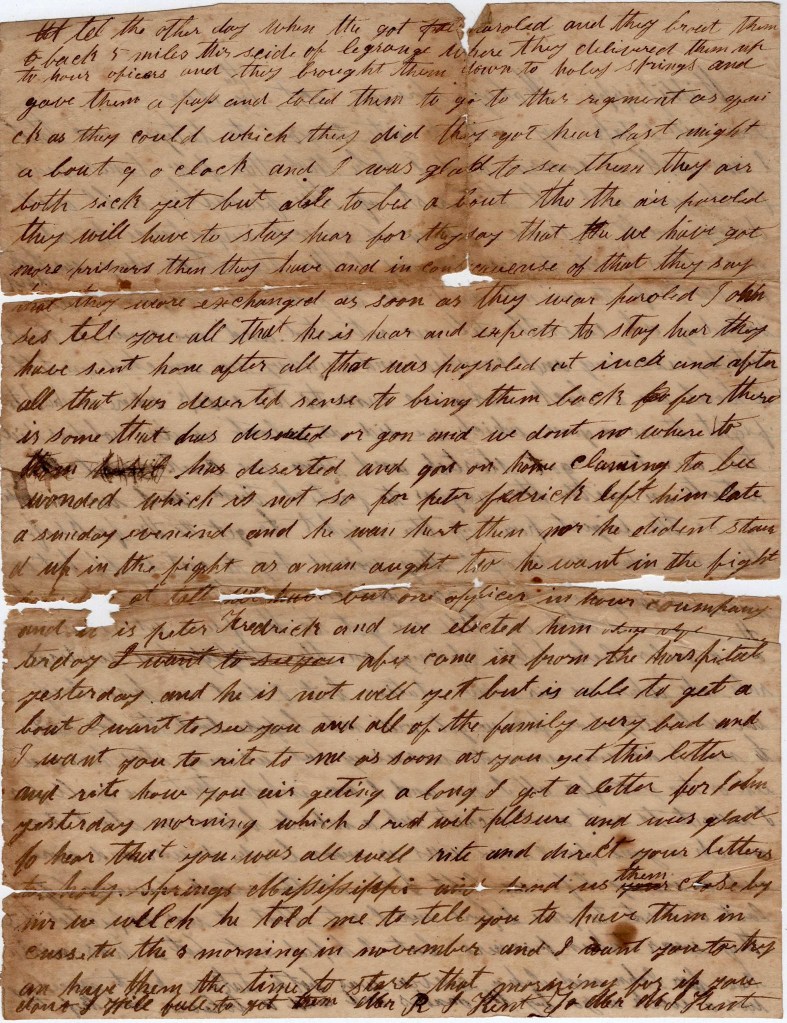 tel the other day when the got paroled and they brout them
back 5 miles this seide of legrange where they delivered them up
to hour oficers and they brought them down to holy springs and
gave them a pass and toled them to go to ther regment as qui
ck as they could which they did they got hear last night
a bout 9 o clock and I was glad to see them they air
both sick yet but able to bee a bout tho the air paroled
they will have to stay hear for they say that the we have got
more prisners then they have and in consequense of that they say
that they wore exchanged as soon as they wear paroled John
ses tell you all that he is hear and expects to stay hear they
have sent home after all that was payroled at iuck and after
all that has deserted sense to bring them back for there
is some that has deserted or gon and we dont no where to
has deserted and gon on home claming to bee
wonded which is not so for peter fedrick left him late
a sunday evenind and he wan hurt then nor he dident stan
d up in the fight as a man aught two he want in the fight
at tell but one officer in hour coumpany
and is peter Fredrick and we elected him
terday I want to see you abe came in from the horspital
yesterday and he is not well yet but is able to get a
bout I want to see you and all of the family very bad and
I want you to rite to me as soon as you get this letter
and rite how you air geting a long I got a letter for John
yesterday morning which I red wit plesure and was glad
to hear that you was all well rite and direct your letters
to holy springs Mississippi and send us them your close by
mr w welch he told me to tell you to have them in
cusseta the 3 morning in november and I want you to try
an have them the time to start that morning for if you
dont I will fail to get them Mr R J Kent To Mr M J Kent